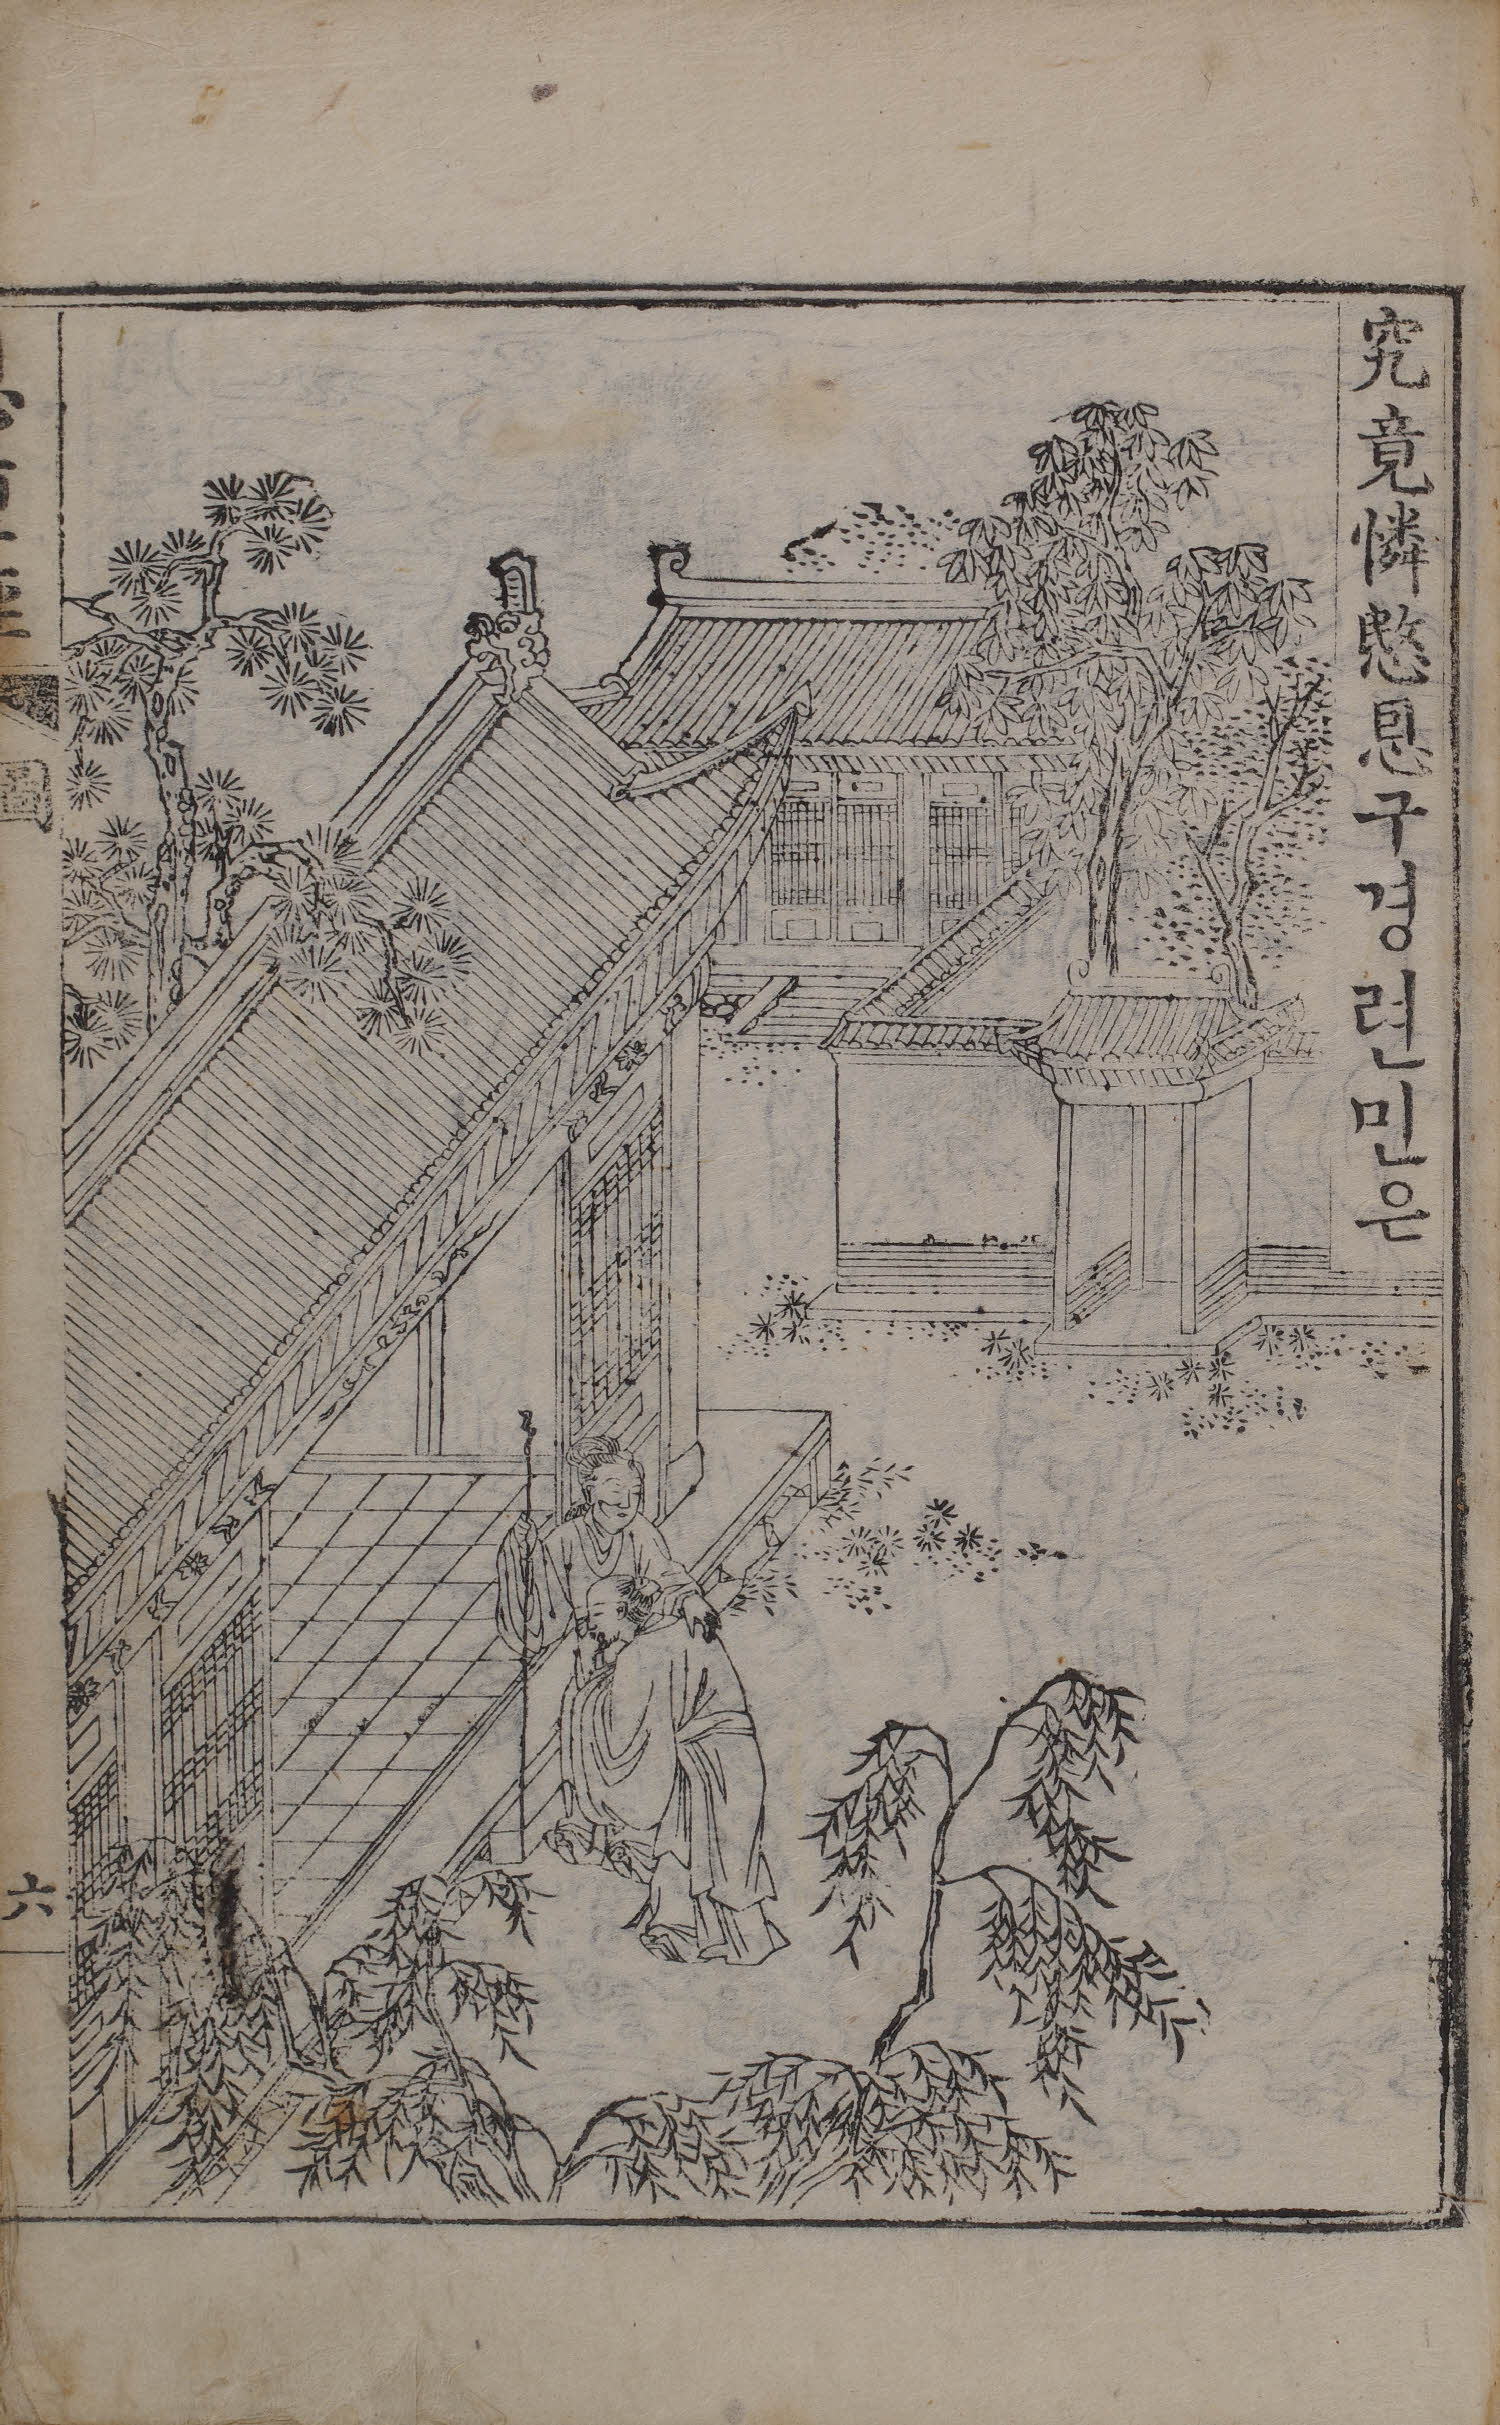 究竟憐愍恩구경련민은
圖
六